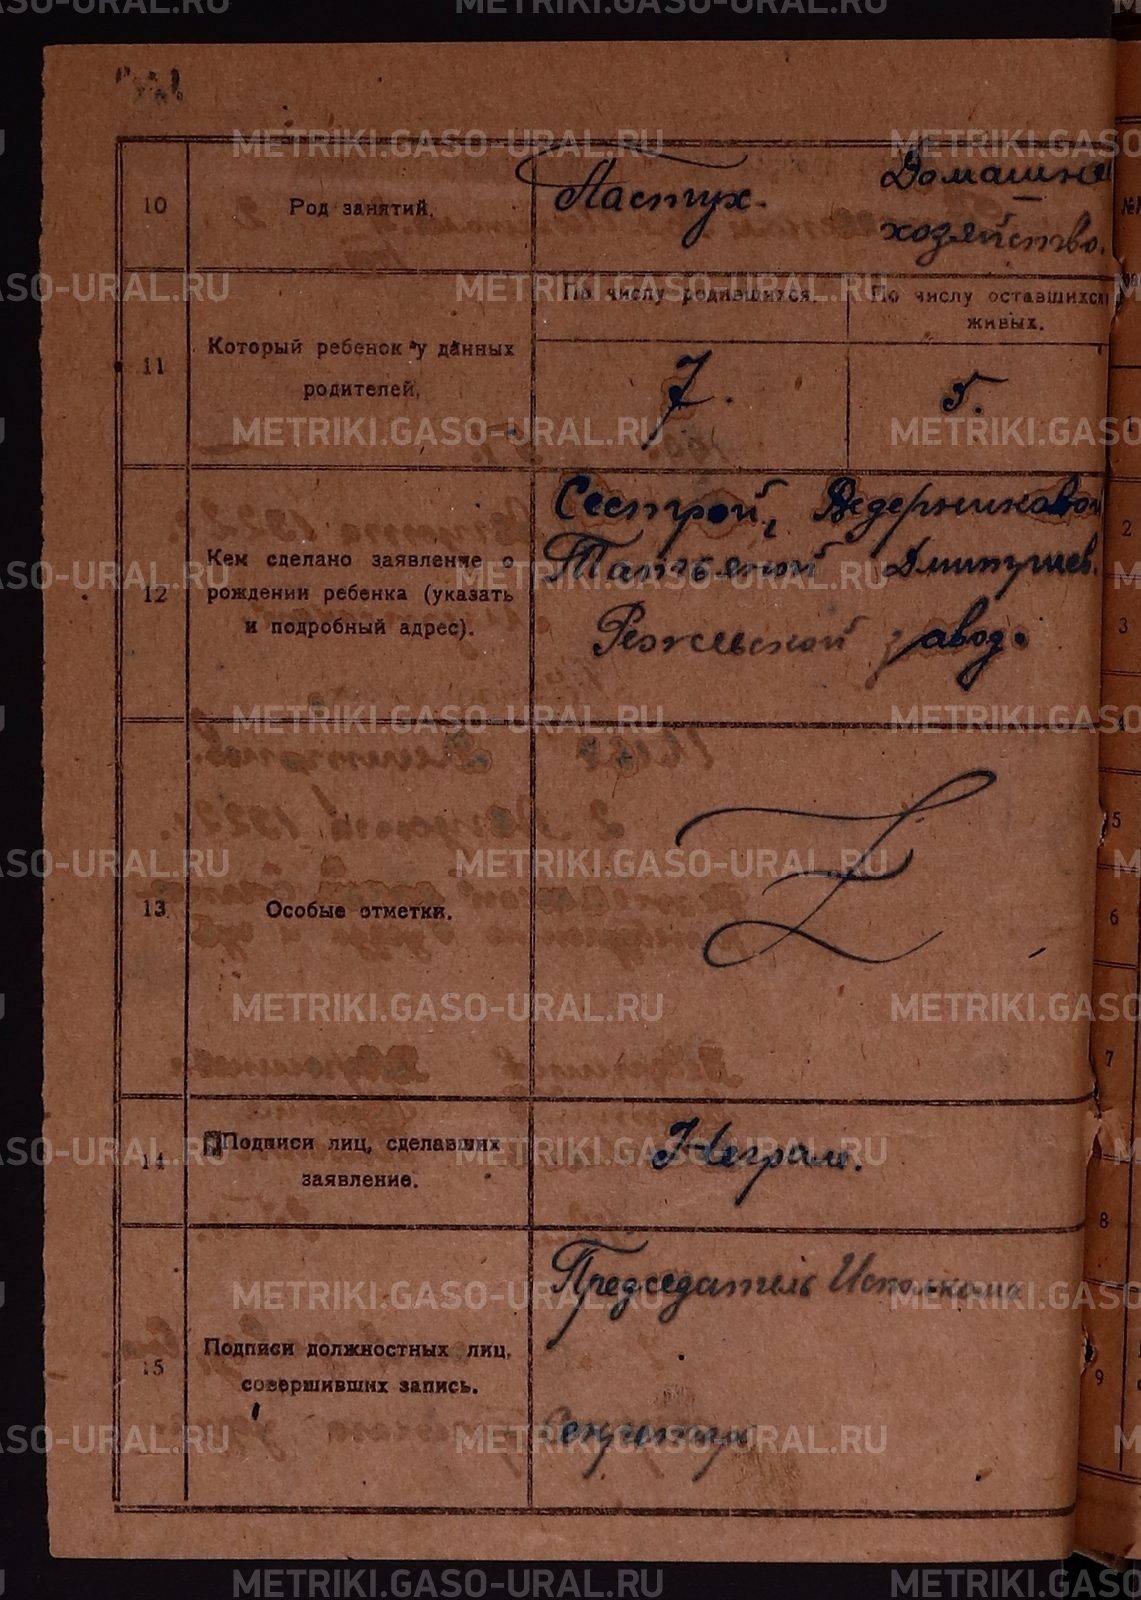 10
Род занятий.
Пастух.
Домашне
хозяйство.
11
Который ребенок у данных
родителей.
По числу родившихся.
По числу оставшихся
живых.
7.
5.
12
Кем сделано заявление о
рождении ребенка (указать
и подробный адрес).
Сестрой, Ведерниковой
Татьяной Дмитриев.
Режевской завод.
13
Особые отметки.
Z
14
Подписи лиц, сделавших
заявление.
Неграм.
15
Подписи должностных лиц,
совершивших запись.
Председатель Исполкома
Секретарь
1
2
3
4
5
6
7
8
9
METRIKI.GASO-URAL.RU